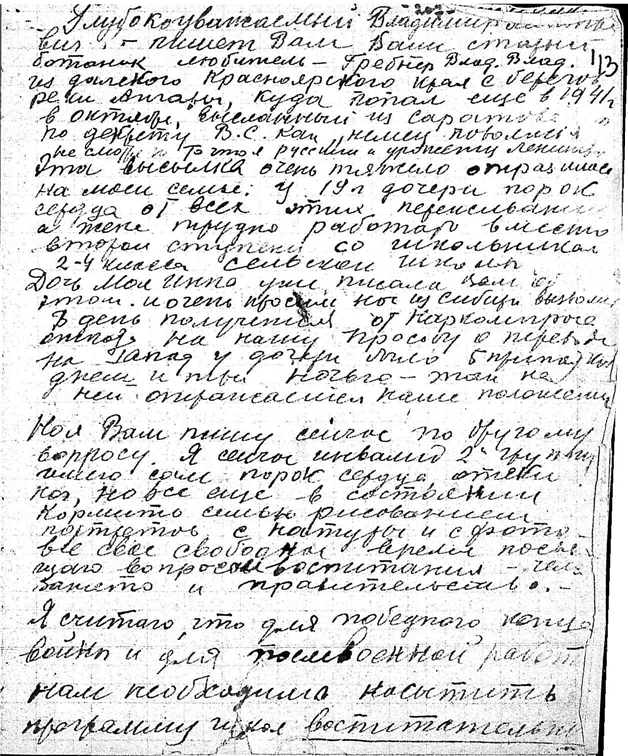 Глубокоуважаемый Владимир
вич. – пишет Вам Ваш старый
ботаник любитель – Гребнер Влад. Влад. 113
из далекого Красноярского края с берегов
реки Ангары, куда попал еще в 1941 г
в октябре, высланный из Саратова
по декрету В.С. как немец поволжья
не смотря на то что я русский и уроженец Ленинг
Эта высылка очень тяжело отразилась
на моей семье: у 19 л дочери порок
сердца от всех этих переживаний
а жене трудно работать вместо
второй ступени со школьниками
2-4 класса сельской школы
Дочь моя Инна уже писала Вам об
этом. и очень просим нас из Сибири
В день получения от Наркомпроса
отказа на нашу просьбу о переводе
на запад у дочери было 5 припадков
днем и три ночью – так на
ней отражается наше положение
Но я Вам пишу сейчас по другому
вопросу. Я сейчас инвалид 2й группы
имею сам порок сердца, отеки
ног, но все еще в состоянии
кормить семью рисованием
портретов с натуры и с фото-
Все свое свободное время посвя-
щаю вопросам воспитания –
и правительство. –
Я считаю, что для победного конца
войны и для послевоенной работ
нам необходимо насытить
программу школ воспитательн